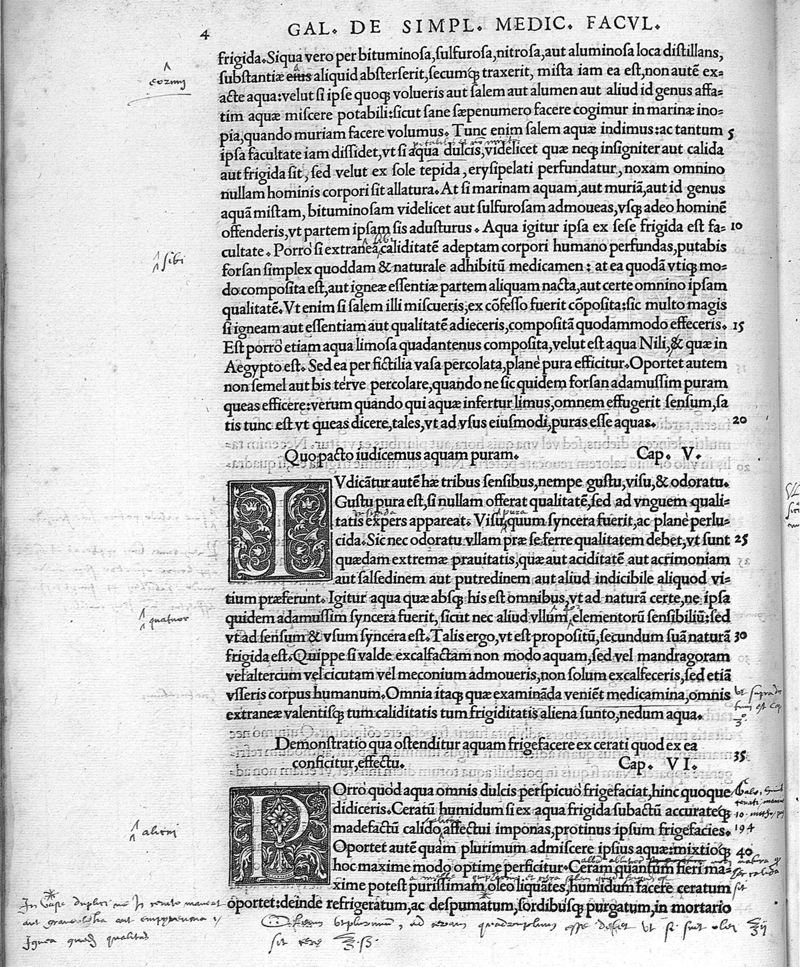 4
GAL. DE SIMPL. MEDIC. FACVL.
frigida. Siqua vero per bituminosa, sulfurosa, nitrosa, aut aluminosa loca distillans,
substantiæ eius aliquid absterserit, secumq; traxerit, mista iam ea est, non autē ex=
acte aqua: velut si ipse quoq; volueris aut salem aut alumen aut aliud id genus affa=
tim aquæ miscere potabili: sicut sane sæpenumero facere cogimur in marinæ ino=
pia, quando muriam facere volumus. Tunc enim salem aquæ indimus: ac tantum 5
ipsa facultate iam dissidet, vt si aqua dulcis, videlicet quæ neq; insigniter aut calida
aut frigida sit, sed velut ex sole tepida, erysipelati perfundatur, noxam omnino
nullam hominis corpori sit allatura. At si marinam aquam, aut muriā, aut id genus
aquā mistam, bituminosam videlicet aut sulfurosam admoueas, vsq; adeo hominē
offenderis, vt partem ipsam sis adusturus. Aqua igitur ipsa ex sese frigida est fa= 10
cultate. Porro si extraneā caliditatē adeptam corpori humano perfundas, putabis
sibi
forsan simplex quoddam & naturale adhibitū medicamen: at ea quodā vtiq; mo=
do composita est, aut igneæ essentiæ partem aliquam nacta, aut certe omnino ipsam
qualitatē. Vt enim si salem illi miscueris, ex cōfesso fuerit cōposita: sic multo magis
si igneam aut essentiam aut qualitatē adieceris, compositā quodammodo effeceris. 15
Est porro etiam aqua limosa quadantenus composita, velut est aqua Nili, & quæ in
Aegypto est. Sed ea per fictilia vasa percolata, plane pura efficitur. Oportet autem
non semel aut bis terve percolare, quando ne sic quidem forsan adamussim puram
queas efficere: verum quando qui aquæ infertur limus, omnem effugerit sensum, sa
tis tunc est vt queas dicere, tales, vt ad vsus eiusmodi, puras esse aquas. 20
Quo pacto iudicemus aquam puram. Cap. V.
IVdicātur autē hæ tribus sensibus, nempe gustu, visu, & odoratu.
Gustu pura est, si nullam offerat qualitatē, sed ad vnguem quali=
tatis expers appareat. Visu, quum syncera fuerit, ac plane perlu=
cida. Sic nec odoratu vllam præ se ferre qualitatem debet, vt sunt 25
quædam extremæ prauitatis, quæ aut aciditatē aut acrimoniam
aut salsedinem aut putredinem aut aliud indicibile aliquod vi=
tium præferunt. Igitur aqua quæ absq; his est omnibus, vt ad naturā certe, ne ipsa
quidem adamussim syncera fuerit, sicut nec aliud vllum, elementorū sensibiliū: sed
quatuor
vt ad sensum & vsum syncera est. Talis ergo, vt est propositū, secundum suā naturā 30
frigida est. Quippe si valde excalfactam non modo aquam, sed vel mandragoram
vel altercum vel cicutam vel meconium admoueris, non solum excalfeceris, sed etiā
vsseris corpus humanum. Omnia itaq; quæ examināda veniēt medicamina, omnis
extraneæ valentisq; tum caliditatis tum frigiditatis aliena sunto, nedum aqua.
Demonstratio qua ostenditur aquam frigefacere ex cerati quod ex ea 35
conficitur, effectu. Cap. VI.
POrro quod aqua omnis dulcis perspicuo frigefaciat, hinc quoque
didiceris. Ceratū humidum si ex aqua frigida subactū accurateq;
madefactū calido, affectui imponas, protinus ipsum frigefacies.
alicui
194
Oportet autē quam plurimum admiscere ipsius aquæ: mixtioq; 40
hoc maxime modo optime perficitur. Ceram quantum fieri ma=
xime potest purissimam, oleo liquātes, humidum facere ceratum
oportet: deinde refrigeratum, ac despumatum, sordibusq; purgatum, in mortario